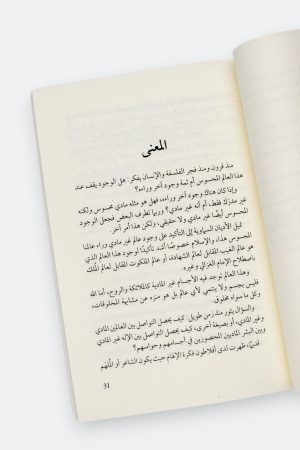 المعنى
منذ قرون ومنذ فجر الفلسفة والإنسان يفكر: هل الوجود يقف عند
هذا العالم المحسوس أم ثمة وجود آخر وراءه؟
وإذا كان هناك وجود آخر وراءه، فهل هو مثله مادي محسوس ولكنه
غير مدرك فقط، أم أنه غير مادي؟ وربما تطرف البعض فجعل الوجود
المحسوس أيضًا غير مادي ولا حقيقي، ولكن هذا أمر آخر.
تميل الأديان السماوية إلى التأكيد على وجود عالم غير مادي وراء عالمنا
المحسوس هذا، والإسلام خصوصًا أشد تأكيدًا لوجود هذا العالم الذي
هو عالم الغيب المقابل لعالم الشهادة، أو عالم الملكوت المقابل لعالم الملك
باصطلاح الإمام الغزالي وغيره.
وهذا العالم توجد فيه الأجسام غير المادية كالملائكة والروح، أما الله
فليس بجسم ولا ينتمي لأي عالم بل هو منزه عن مشابهة المخلوقات،
وكل ما سواه مخلوق.
والسؤال يثور منذ زمن طويل: كيف يحصل التواصل بين العالمين المادي
وغير المادي، أو بصيغة أخرى، كيف يحصل التواصل بين الإله غير المادي
وبين البشر الماديين المحصورين في أجسامهم وحواسهم؟
قديمًا، ظهرت لدى أفلاطون فكرة الإلهام حيث يكون الشاعر أو الملهم
31